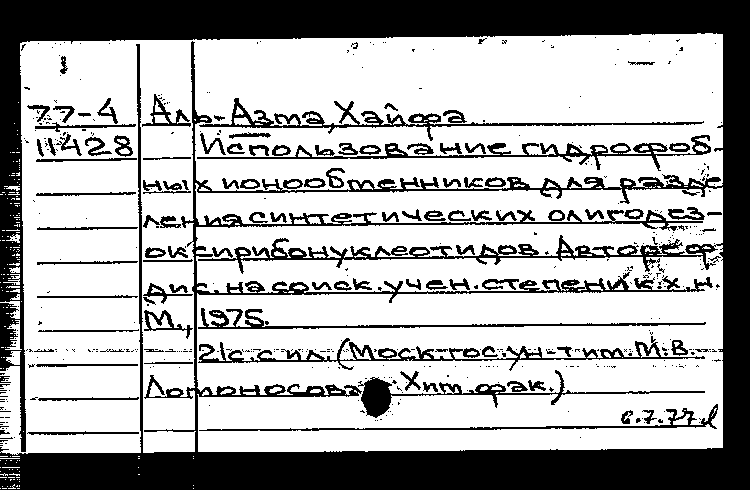 77-4 Аль-Азта, Хайфа
11428 Использование гидрофоб-
ных ионообменников для разде
ления синтетических олигодез-
оксирибонуклеотидов. Автореф
дис. на соиск. учен. степени к.х.н.
М., 1975.
21с. с ил. (Моск. гос. ун-т им. М.В.
Ломоносова. Хим. фак.).
6.7.77